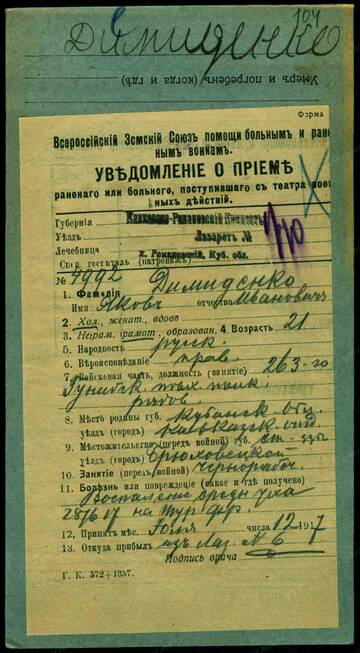 104
Димиденко
Умеръ и погребенъ (когда и гдѣ)
Форма
Всероссійскій Земскій Союзъ помощи больнымъ и ране
нымъ воинамъ.
УВѢДОМЛЕНІЕ О ПРІЕМѢ
раненаго или больного, поступившаго съ театра воен
ныхъ дѣйствій.
Губернія
Уѣздъ Лазаретъ №
Лечебница х. Романовскій, Куб. обл.
Спец. госпиталь (патронажъ)
№ 7992
1. Фамилія Димиденко
Имя Яковъ отчество Ивановичъ
2. Хол., женат., вдовъ
3. Неграм. грамот., образован. 4. Возрастъ 21
5. Народность русск.
6. Вѣроисповѣданіе прав.
7. Войсковая часть, должность (занятіе) 263-го
Гунибск. пѣх. полк.
рядов.
8. Мѣсто родины губ. Кубанск. обл.
уѣздъ (городъ) Кавказск. отд.
9. Мѣстожительство (передъ войной) губ. ст-цы
уѣздъ (городъ) Брюховецкой
10. Занятіе (перед. войной) чернорабоч.
11. Болѣзнь или поврежденіе (какое и гдѣ получено)
Воспаленіе средн. уха
25/6 17 на тур. фр.
12. Принятъ мѣс. Іюля числа 12 1917
13. Откуда прибылъ изъ лаз. № 6
Подпись врача
Г. К. 572+1357.